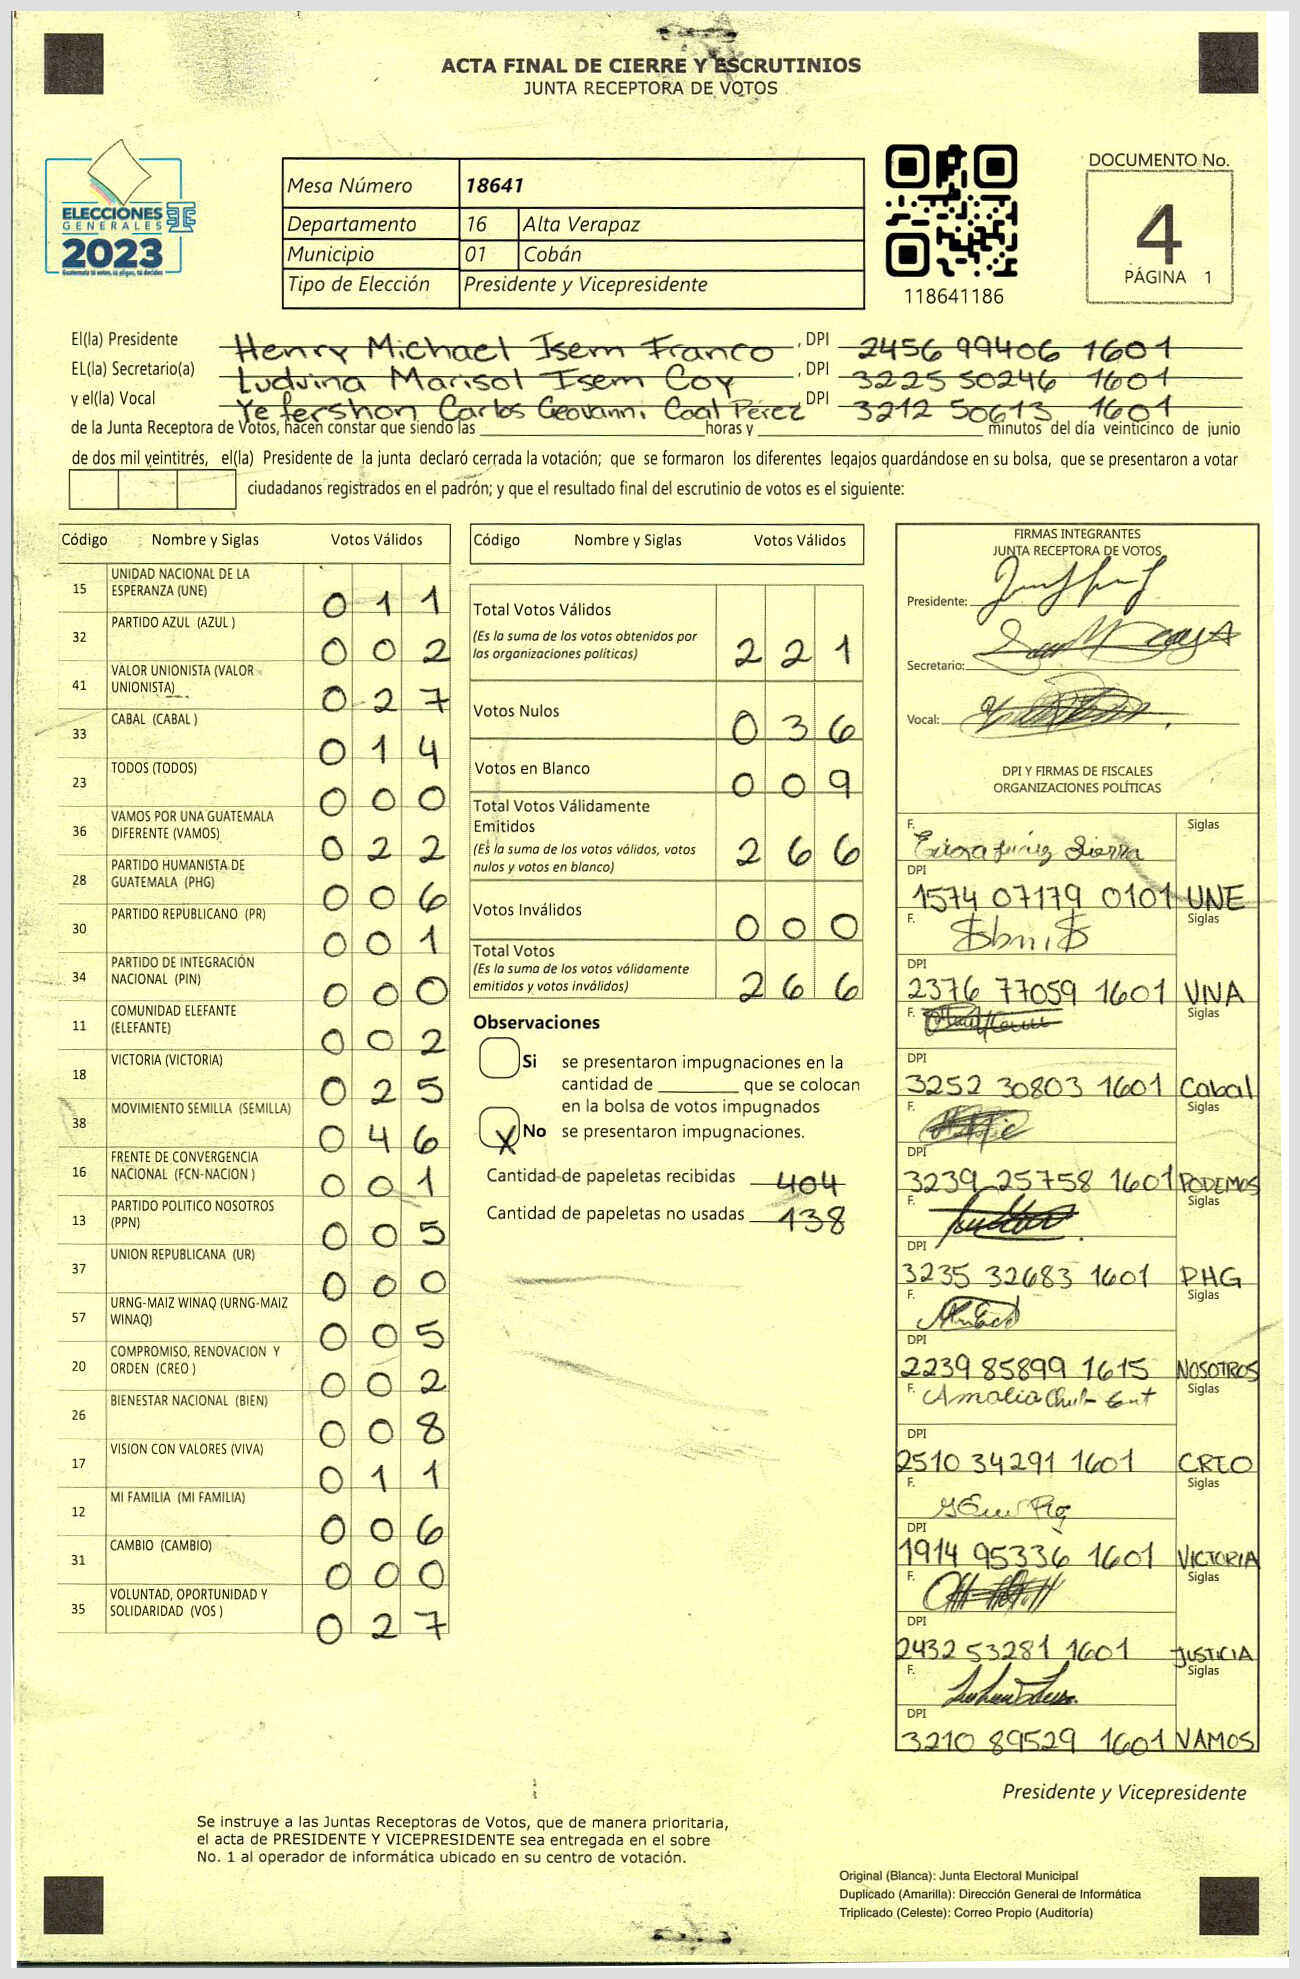 ACTA FINAL DE CIERRE Y ESCRUTINIOS
JUNTA RECEPTORA DE VOTOS
ELECCIONES
GENERALES
2023
Guatemala tú votas, tú eliges, tú decides
Mesa Número 18641
Departamento 16 Alta Verapaz
Municipio 01 Cobán
Tipo de Elección Presidente y Vicepresidente
118641186
DOCUMENTO No.
4
PÁGINA 1
El(la) Presidente Henry Michael Isem Franco, DPI 2456 99406 1601
EL(la) Secretario(a) Ludvina Marisol Isem Coy, DPI 3225 50246 1601
y el(la) Vocal Yefershon Carlos Geovanni Caal Pérez DPI 3212 50613 1601
de la Junta Receptora de Votos, hacen constar que siendo las ____ horas y ____ minutos del día veinticinco de junio
de dos mil veintitrés, el(la) Presidente de la junta declaró cerrada la votación; que se formaron los diferentes legajos guardándose en su bolsa, que se presentaron a votar
ciudadanos registrados en el padrón; y que el resultado final del escrutinio de votos es el siguiente:
Código Nombre y Siglas Votos Válidos
15 UNIDAD NACIONAL DE LA
ESPERANZA (UNE) 0 1 1
32 PARTIDO AZUL (AZUL ) 0 0 2
41 VALOR UNIONISTA (VALOR
UNIONISTA) 0 2 7
33 CABAL (CABAL ) 0 1 4
23 TODOS (TODOS) 0 0 0
36 VAMOS POR UNA GUATEMALA
DIFERENTE (VAMOS) 0 2 2
28 PARTIDO HUMANISTA DE
GUATEMALA (PHG) 0 0 6
30 PARTIDO REPUBLICANO (PR) 0 0 1
34 PARTIDO DE INTEGRACIÓN
NACIONAL (PIN) 0 0 0
11 COMUNIDAD ELEFANTE
(ELEFANTE) 0 0 2
18 VICTORIA (VICTORIA) 0 2 5
38 MOVIMIENTO SEMILLA (SEMILLA) 0 4 6
16 FRENTE DE CONVERGENCIA
NACIONAL (FCN-NACION ) 0 0 1
13 PARTIDO POLITICO NOSOTROS
(PPN) 0 0 5
37 UNION REPUBLICANA (UR) 0 0 0
57 URNG-MAIZ WINAQ (URNG-MAIZ
WINAQ) 0 0 5
20 COMPROMISO, RENOVACION Y
ORDEN (CREO ) 0 0 2
26 BIENESTAR NACIONAL (BIEN) 0 0 8
17 VISION CON VALORES (VIVA) 0 1 1
12 MI FAMILIA (MI FAMILIA) 0 0 6
31 CAMBIO (CAMBIO) 0 0 0
35 VOLUNTAD, OPORTUNIDAD Y
SOLIDARIDAD (VOS ) 0 2 7
Código Nombre y Siglas Votos Válidos
Total Votos Válidos
(Es la suma de los votos obtenidos por
las organizaciones políticas) 2 2 1
Votos Nulos 0 3 6
Votos en Blanco 0 0 9
Total Votos Válidamente
Emitidos
(Es la suma de los votos válidos, votos
nulos y votos en blanco) 2 6 6
Votos Inválidos 0 0 0
Total Votos
(Es la suma de los votos válidamente
emitidos y votos inválidos) 2 6 6
Observaciones
Si se presentaron impugnaciones en la
cantidad de ____ que se colocan
en la bolsa de votos impugnados
X No se presentaron impugnaciones.
Cantidad de papeletas recibidas 404
Cantidad de papeletas no usadas 138
FIRMAS INTEGRANTES
JUNTA RECEPTORA DE VOTOS
Presidente:
Secretario:
Vocal:
DPI Y FIRMAS DE FISCALES
ORGANIZACIONES POLÍTICAS
F. Siglas
DPI
1574 07179 0101 UNE
F. Siglas
DPI
2376 77059 1601 VIVA
F. Siglas
DPI
3252 30803 1601 Cabal
F. Siglas
DPI
3239 25758 1601 PODEMOS
F. Siglas
DPI
3235 32683 1601 PHG
F. Siglas
DPI
2239 85899 1615 NOSOTROS
F. Amalia Siglas
DPI
2510 34291 1601 CREO
F. Siglas
DPI
1914 95336 1601 VICTORIA
F. Siglas
DPI
2432 53281 1601 JUSTICIA
F. Siglas
DPI
3210 89529 1601 VAMOS
Presidente y Vicepresidente
Se instruye a las Juntas Receptoras de Votos, que de manera prioritaria,
el acta de PRESIDENTE Y VICEPRESIDENTE sea entregada en el sobre
No. 1 al operador de informática ubicado en su centro de votación.
Original (Blanca): Junta Electoral Municipal
Duplicado (Amarilla): Dirección General de Informática
Triplicado (Celeste): Correo Propio (Auditoría)